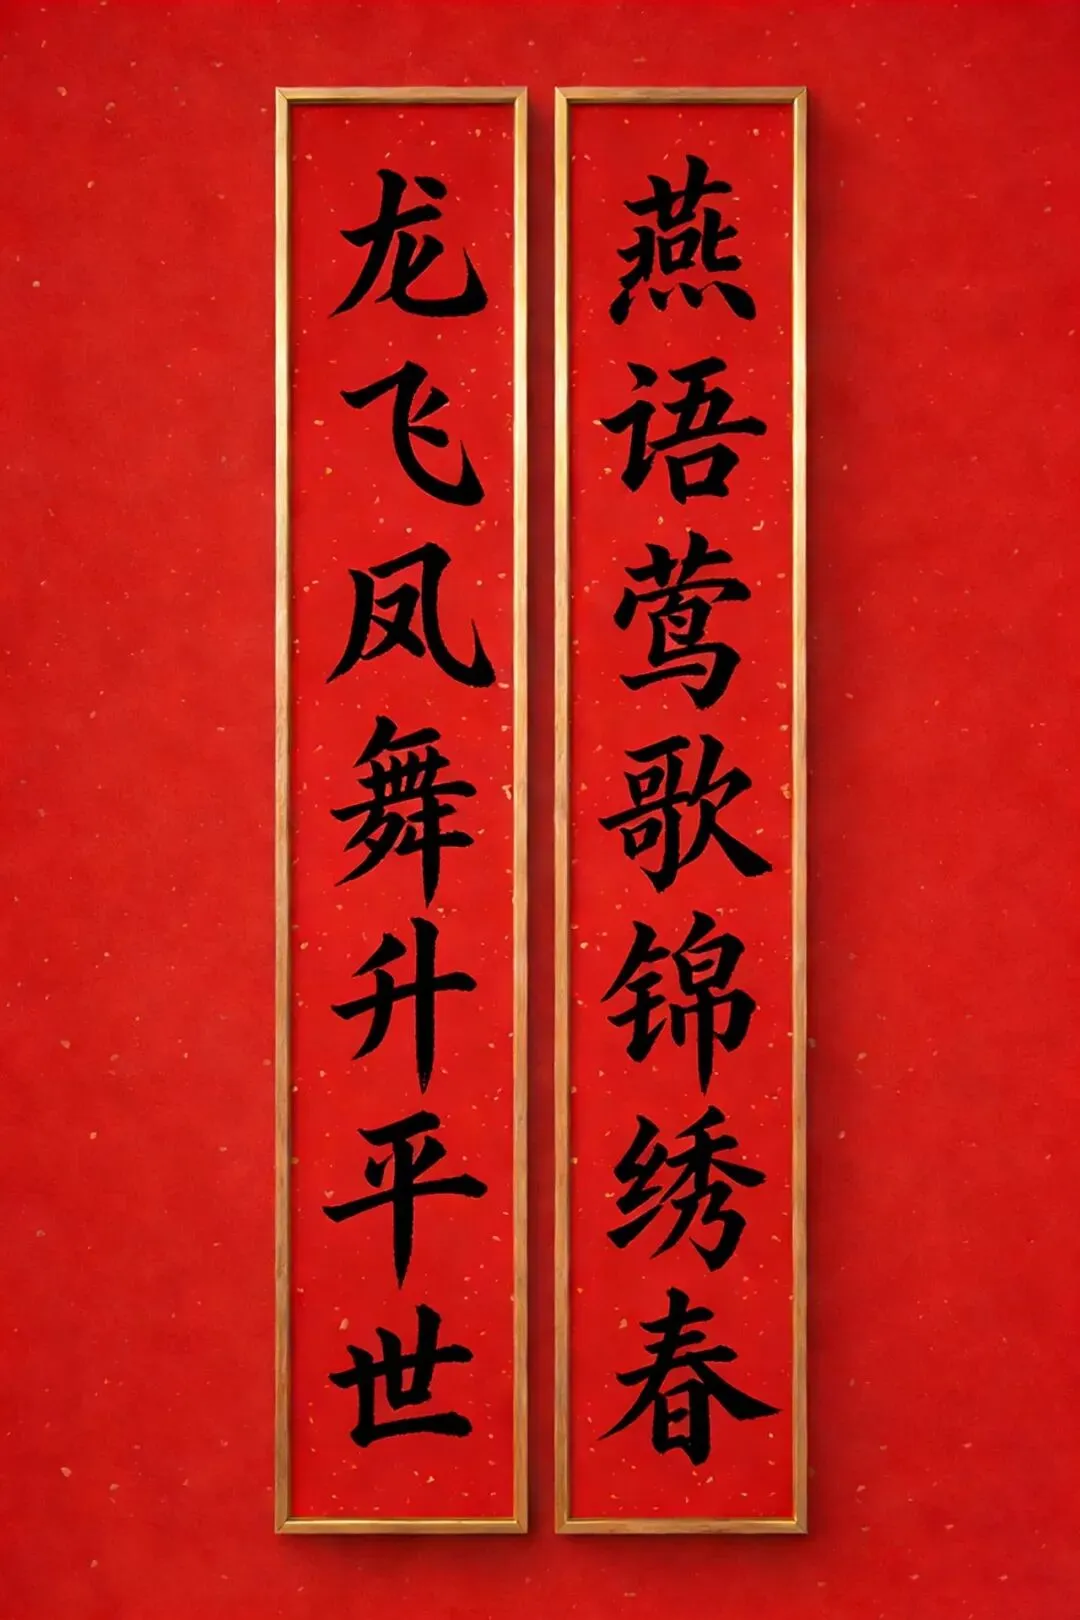 龙飞凤舞升平世
燕语莺歌锦绣春